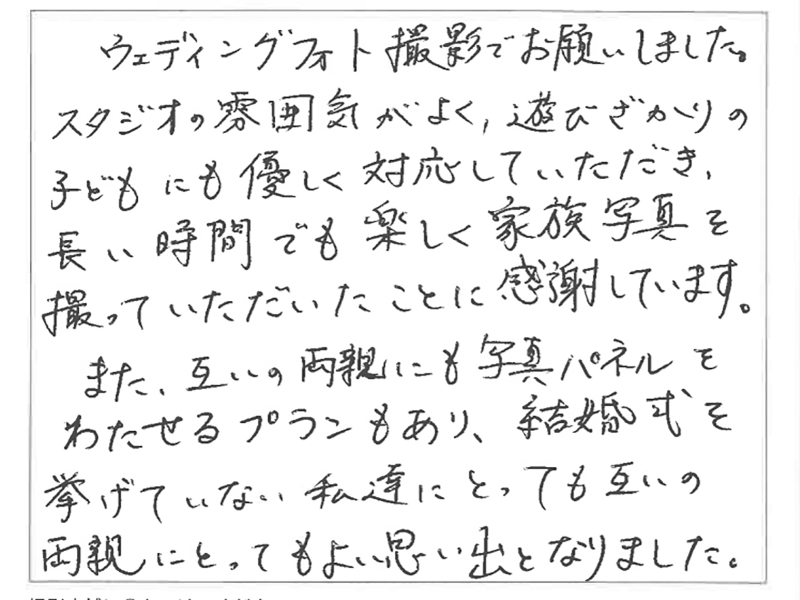 ウェディングフォト撮影でお願いしました。
スタジオの雰囲気がよく，遊びざかりの
子どもにも優しく対応していただき、
長い時間でも楽しく家族写真を
撮っていただいたことに感謝しています。
また、互いの両親にも写真パネルを
わたせるプランもあり、結婚式を
挙げていない私達にとっても互いの
両親にとってもよい思い出となりました。